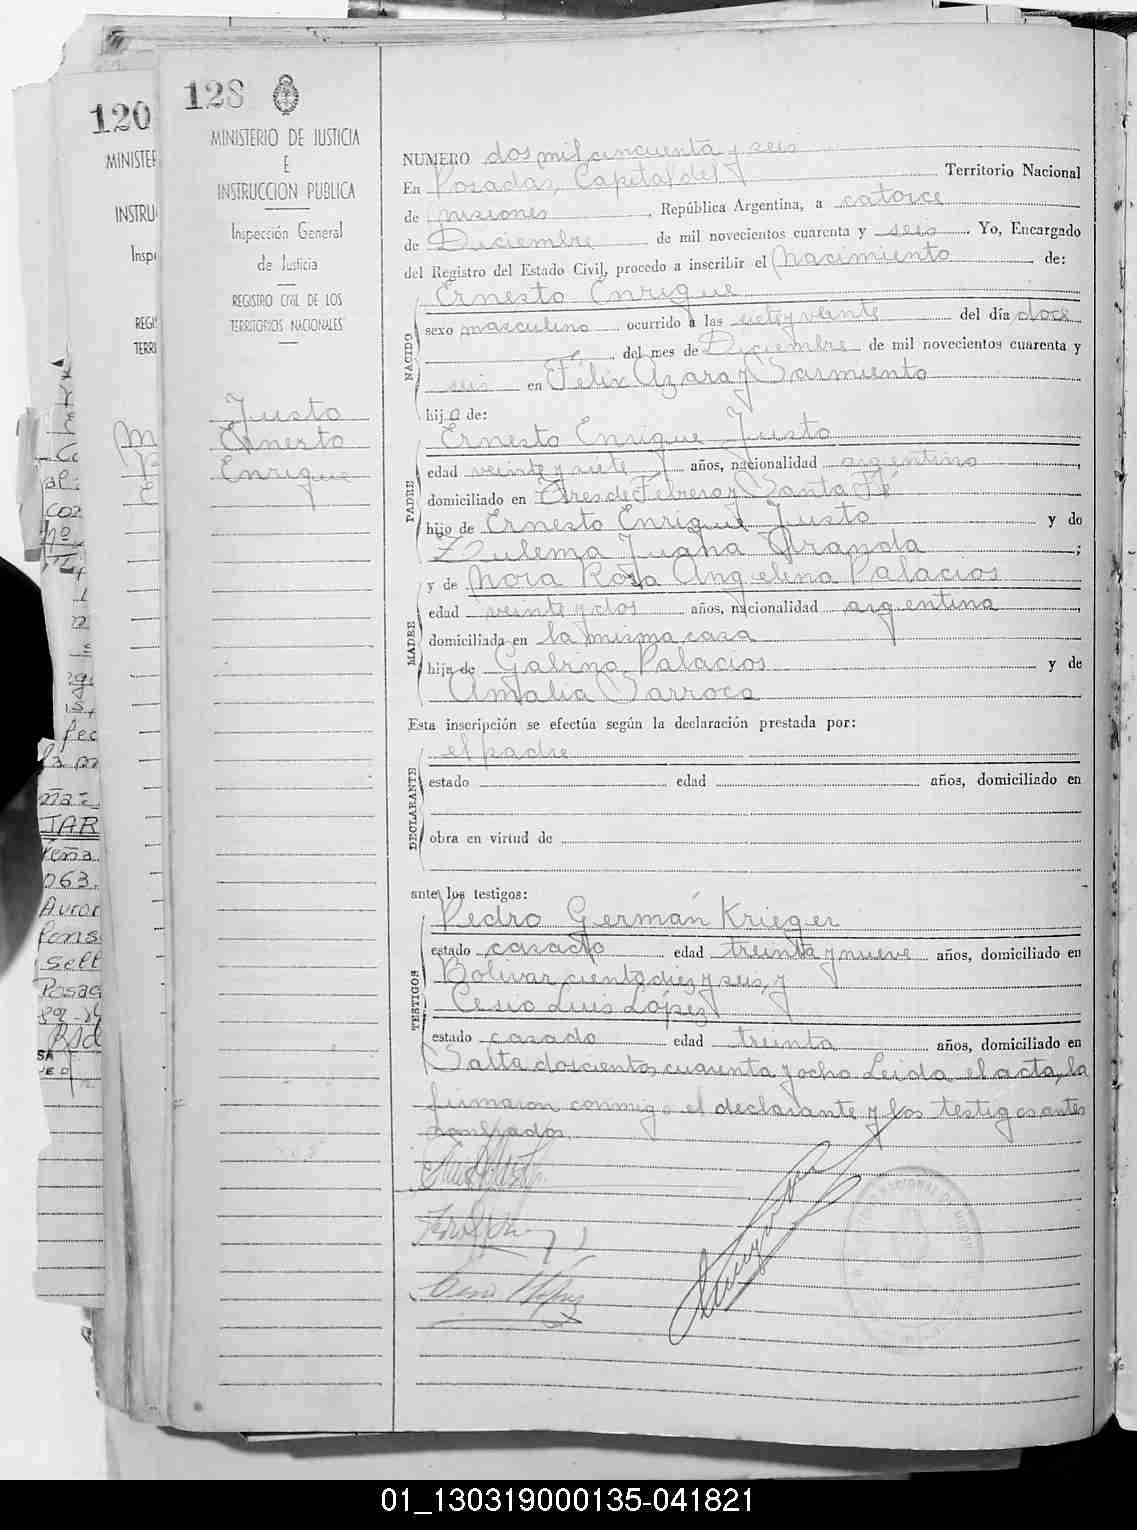 120
MINISTER
INSTRU
Inspe
REGIS
TERRI
128
MINISTERIO DE JUSTICIA
E
INSTRUCCION PUBLICA
Inspección General
de Justicia
REGISTRO CIVIL DE LOS
TERRITORIOS NACIONALES
Justo
Ernesto
Enrique
NUMERO dos mil cincuenta y seis
En Posadas, Capital del Territorio Nacional
de Misiones, República Argentina, a catorce
de Diciembre de mil novecientos cuarenta y seis. Yo, Encargado
del Registro del Estado Civil, procedo a inscribir el Nacimiento de:
NACIDO
Ernesto Enrique
sexo masculino ocurrido a las siete y veinte del día doce
del mes de Diciembre de mil novecientos cuarenta y
seis en Félix Azara y Sarmiento
hijo de:
PADRE
Ernesto Enrique Justo
edad veinte y siete años, nacionalidad argentino,
domiciliado en Tres de Febrero y Santa Fé
hijo de Ernesto Enrique Justo y de
Zulema Juana;
MADRE
y de Nora Rosa Angelina Palacios
edad veinte y dos años, nacionalidad argentina,
domiciliada en la misma casa
hija de Galvino Palacios y de
Amalia Sarroca
Esta inscripción se efectúa según la declaración prestada por:
DECLARANTE
el padre
estado edad años, domiciliado en
obra en virtud de
ante los testigos:
TESTIGOS
Pedro Germán Krieger
estado casado edad treinta y nueve años, domiciliado en
Bolívar ciento diez y seis, y
Cesio Luis López
estado casado edad treinta años, domiciliado en
Salta doscientos cuarenta y ocho Leida el acta, la
firmaron conmigo el declarante y los testigos antes
nombrados.
01_130319000135-041821